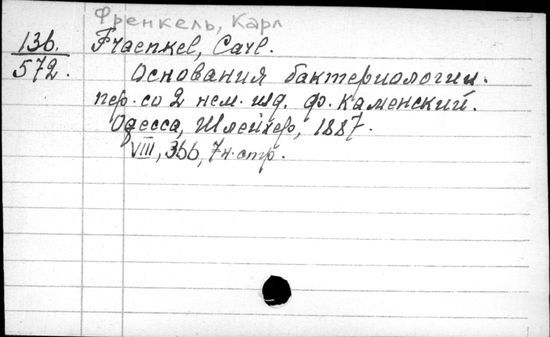 Френкель, Карл
136.
Fraenkel, Carl.
572.
Основания бактериологии.
пер. со 2 нем. изд. Ф. Каменский.
Одесса, Шлейхер, 1887.
VIII, 366, 7 н. стр.